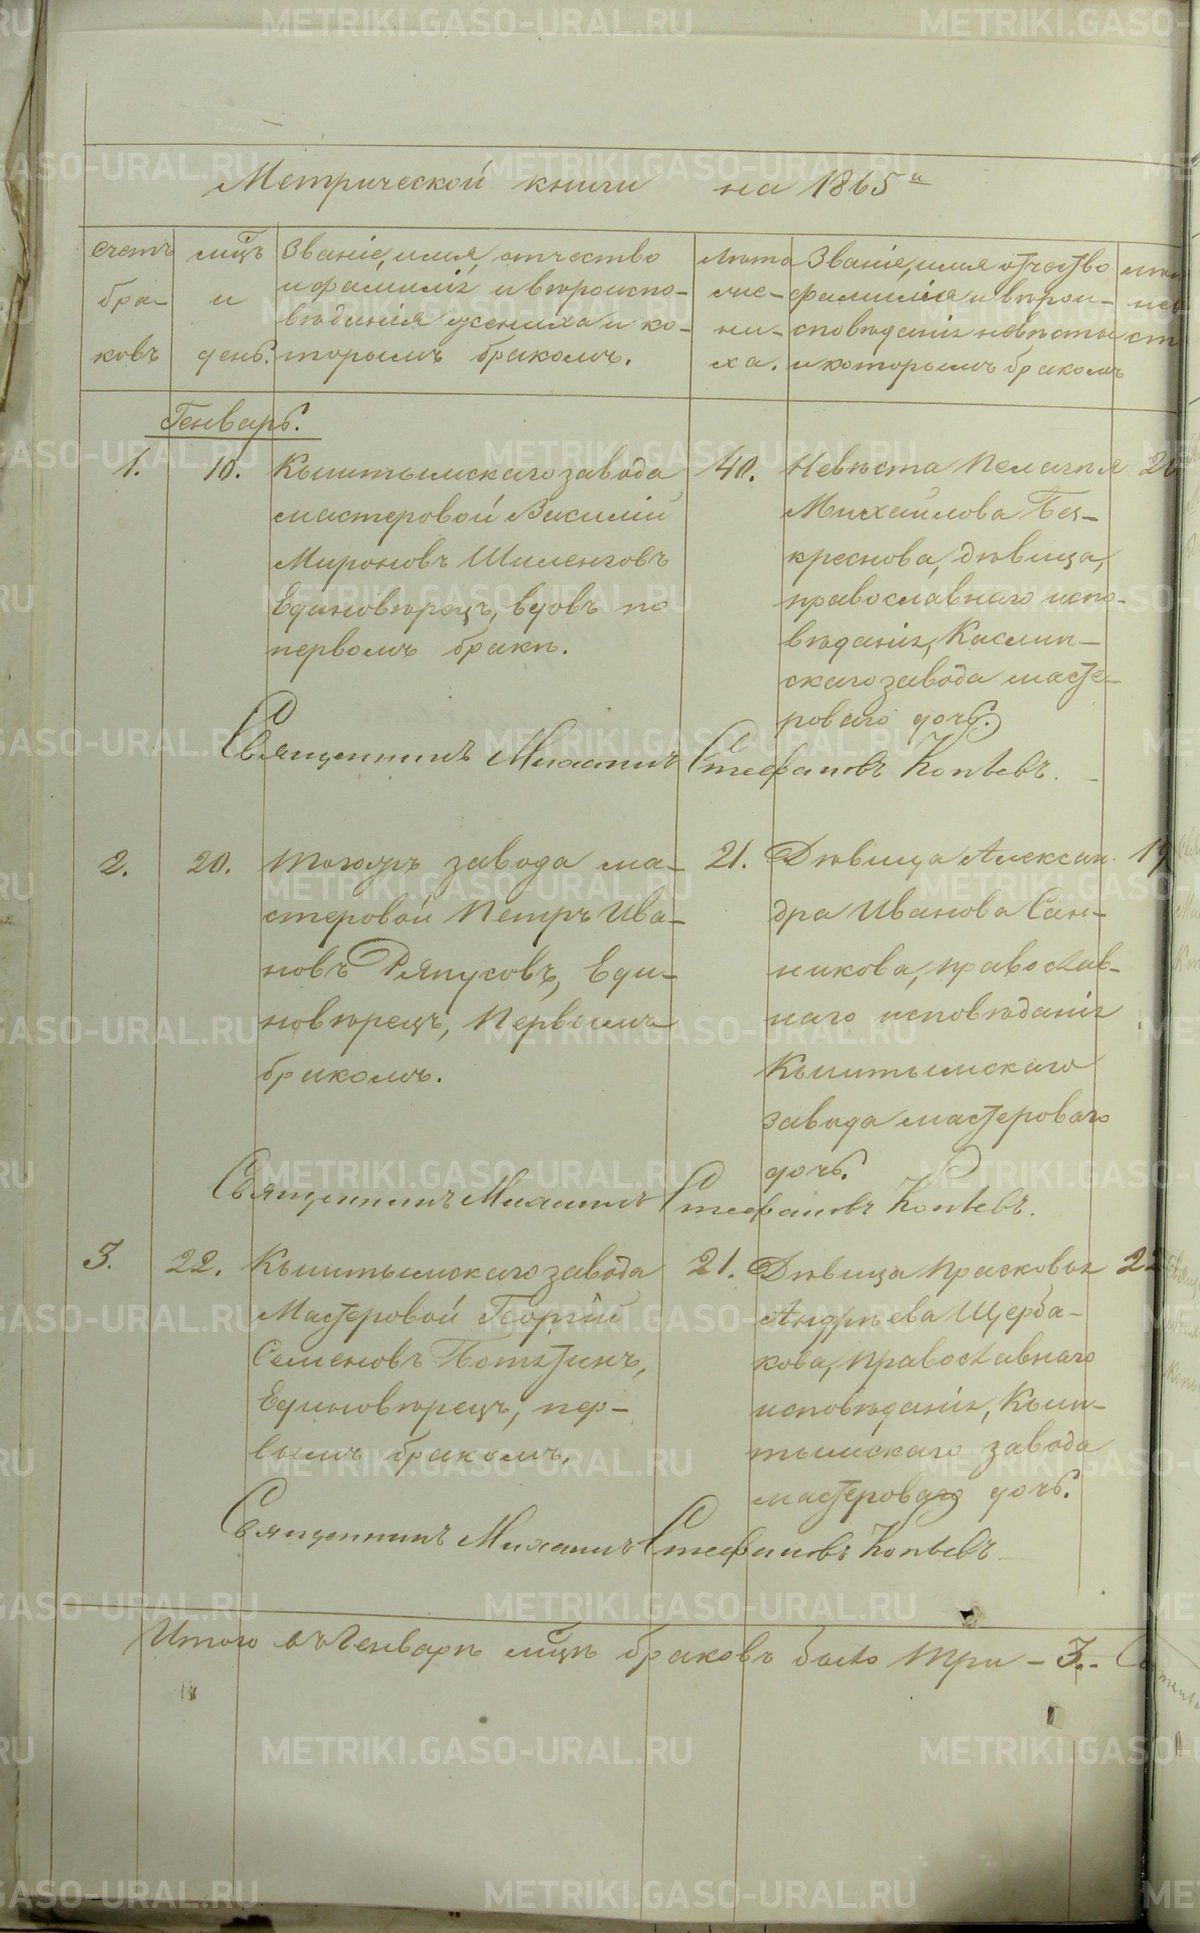 Метрической книги на 1865й
счетъ
бра-
ковъ
мцъ
и
день.
Званіе, имя, отчество
и фамилія и вѣроиспо-
вѣданія жениха и ко-
торымъ бракомъ.
лѣта
же-
ни-
ха.
Званіе, имя отчество
фамилія и вѣрои-
сповѣданія невѣсты
и которымъ бракомъ
Генварь.
1. 10.
Кыштымскаго завода
мастеровой Василій
Мироновъ
Единовѣрецъ, вдовъ по
первомъ бракѣ.
40.
Невѣста Пелагія
Михайлова Без-
креснова, дѣвица,
православнаго испо-
вѣданія, Каслин-
скаго завода масте-
роваго дочь.
Священникъ Михаилъ Стефановъ Копьевъ.
2. 20.
Тогожъ завода ма-
стеровой Петръ Ива-
новъ Ряпусовъ, Еди-
новѣрецъ, Первымъ
бракомъ.
21.
Дѣвица Алексан-
дра Иванова Сан-
никова, православ-
наго исповѣданія
Кыштымскаго
завода мастероваго
дочь.
19
Священникъ Михаилъ Стефановъ Копьевъ.
3. 22.
Кыштымскаго завода
Мастеровой Георгій
Семеновъ Потѣтинъ,
Единовѣрецъ, пер-
вымъ бракомъ.
21.
Дѣвица Прасковья
Андрѣева Щерба-
кова, Православнаго
исповѣданія, Кыш-
тымскаго завода
мастероваго дочь.
Священникъ Михаилъ Стефановъ Копьевъ
Итого въ Генварѣ мцѣ браковъ было три - 3.-
METRIKI.GASO-URAL.RU